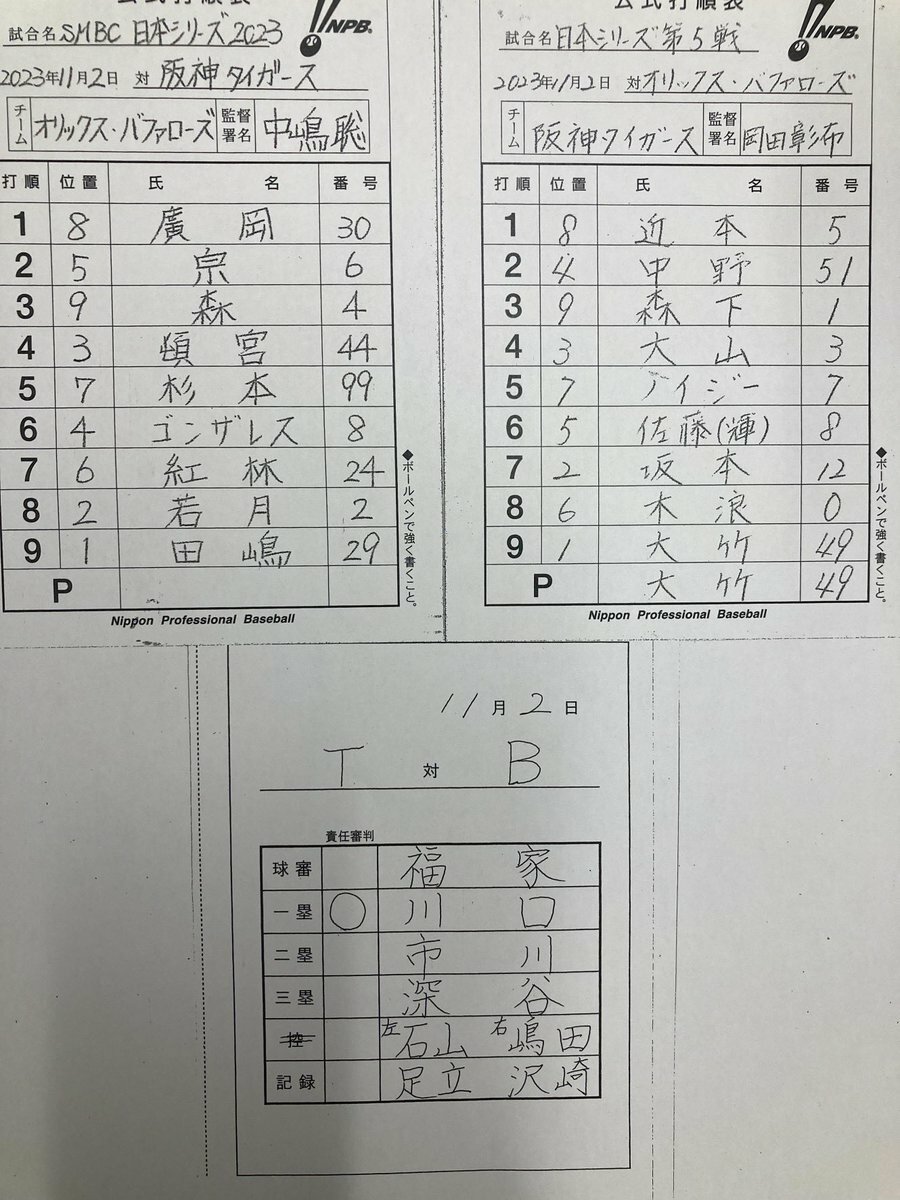 公式打順表
試合名 SMBC 日本シリーズ2023
NPB
2023年11月2日 対 阪神タイガース
チーム オリックス・バファローズ 監督署名 中嶋聡
打順 位置 氏名 番号
1 8 廣岡 30
2 5 宗 6
3 9 森 4
4 3 頓宮 44
5 7 杉本 99
6 4 ゴンザレス 8
7 6 紅林 24
8 2 若月 2
9 1 田嶋 29
P
◆ボールペンで強く書くこと。
Nippon Professional Baseball
公式打順表
試合名 日本シリーズ第5戦
NPB
2023年11月2日 対オリックス・バファローズ
チーム 阪神タイガース 監督署名 岡田彰布
打順 位置 氏名 番号
1 8 近本 5
2 4 中野 51
3 9 森下 1
4 3 大山 3
5 7 ノイジー 7
6 5 佐藤(輝) 8
7 2 坂本 12
8 6 木浪 0
9 1 大竹 49
P 大竹 49
◆ボールペンで強く書くこと。
Nippon Professional Baseball
11月2日
T 対 B
責任審判
球審 福家
一塁 ○ 川口
二塁 市川
三塁 深谷
控 左 石山 右 嶋田
記録 足立 沢崎